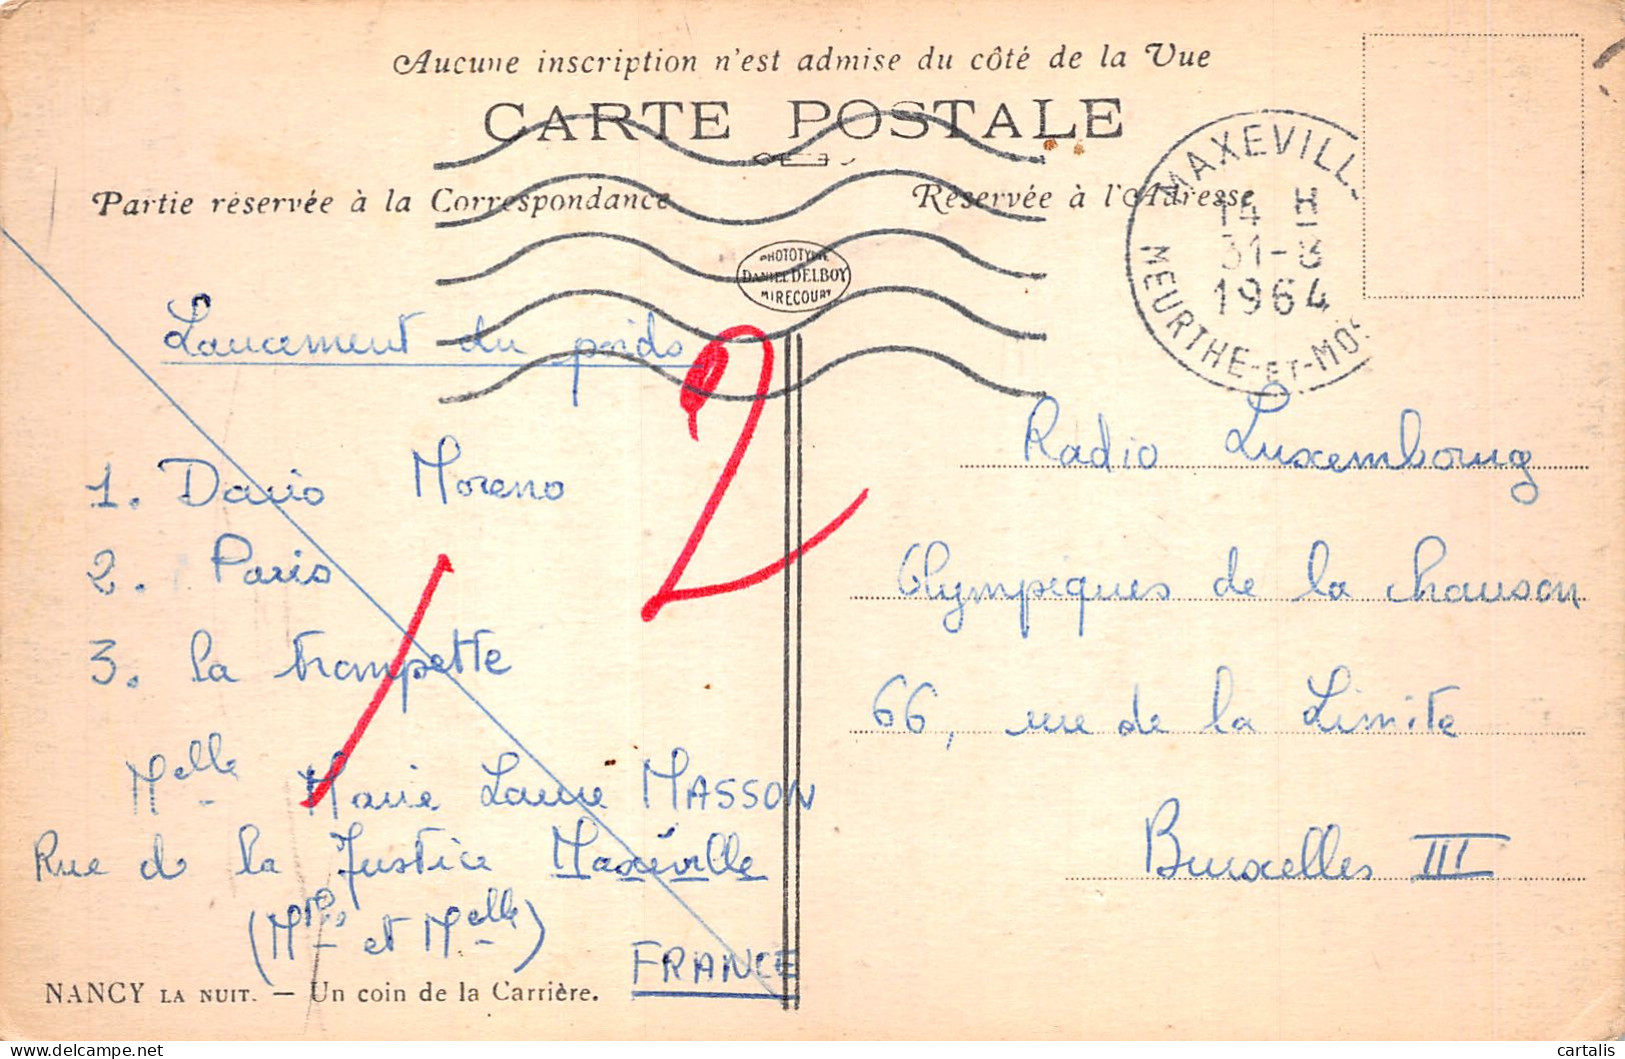 Aucune inscription n'est admise du côté de la Vue
CARTE POSTALE
Partie réservée à la Correspondance
Réservée à l'Adresse
MAXEVILL
14 H
31-8
1964
MEURTHE-ET-MOS
PHOTOTYPIE
DANIEL DELBOY
MIRECOURT
Lancement du poids
1. Dario Moreno
2. Paris
3. la trompette
Melle Marie Laure MASSON
Rue de la Justice Maxéville
(Mme et Melle)
FRANCE
2
Radio Luxembourg
Olympiques de la chanson
66, rue de la Limite
Bruxelles III
NANCY LA NUIT. — Un coin de la Carrière.
cartalis